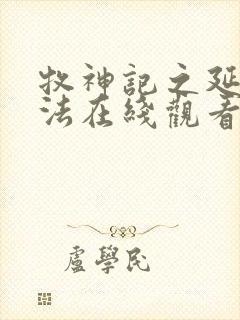 牧神記之延
法在綫觀看
盧學民